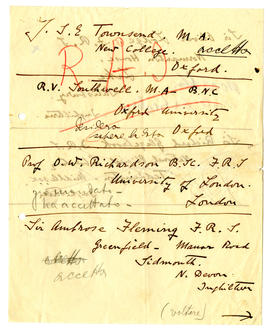 J. S. E. Townsend, M.A.
New College. accetta
Oxford.
R.V. Southwell. M.A. B.N.C
Oxford University
Oxford
Prof O.W. Richardson B.Sc. F.R.S
University of London.
ha accettato.
London
Sir Ambrose Fleming F.R.S.
Greenfield - Manor Road
Sidmouth.
accetta
N. Devon
Inghilterra
(voltare)